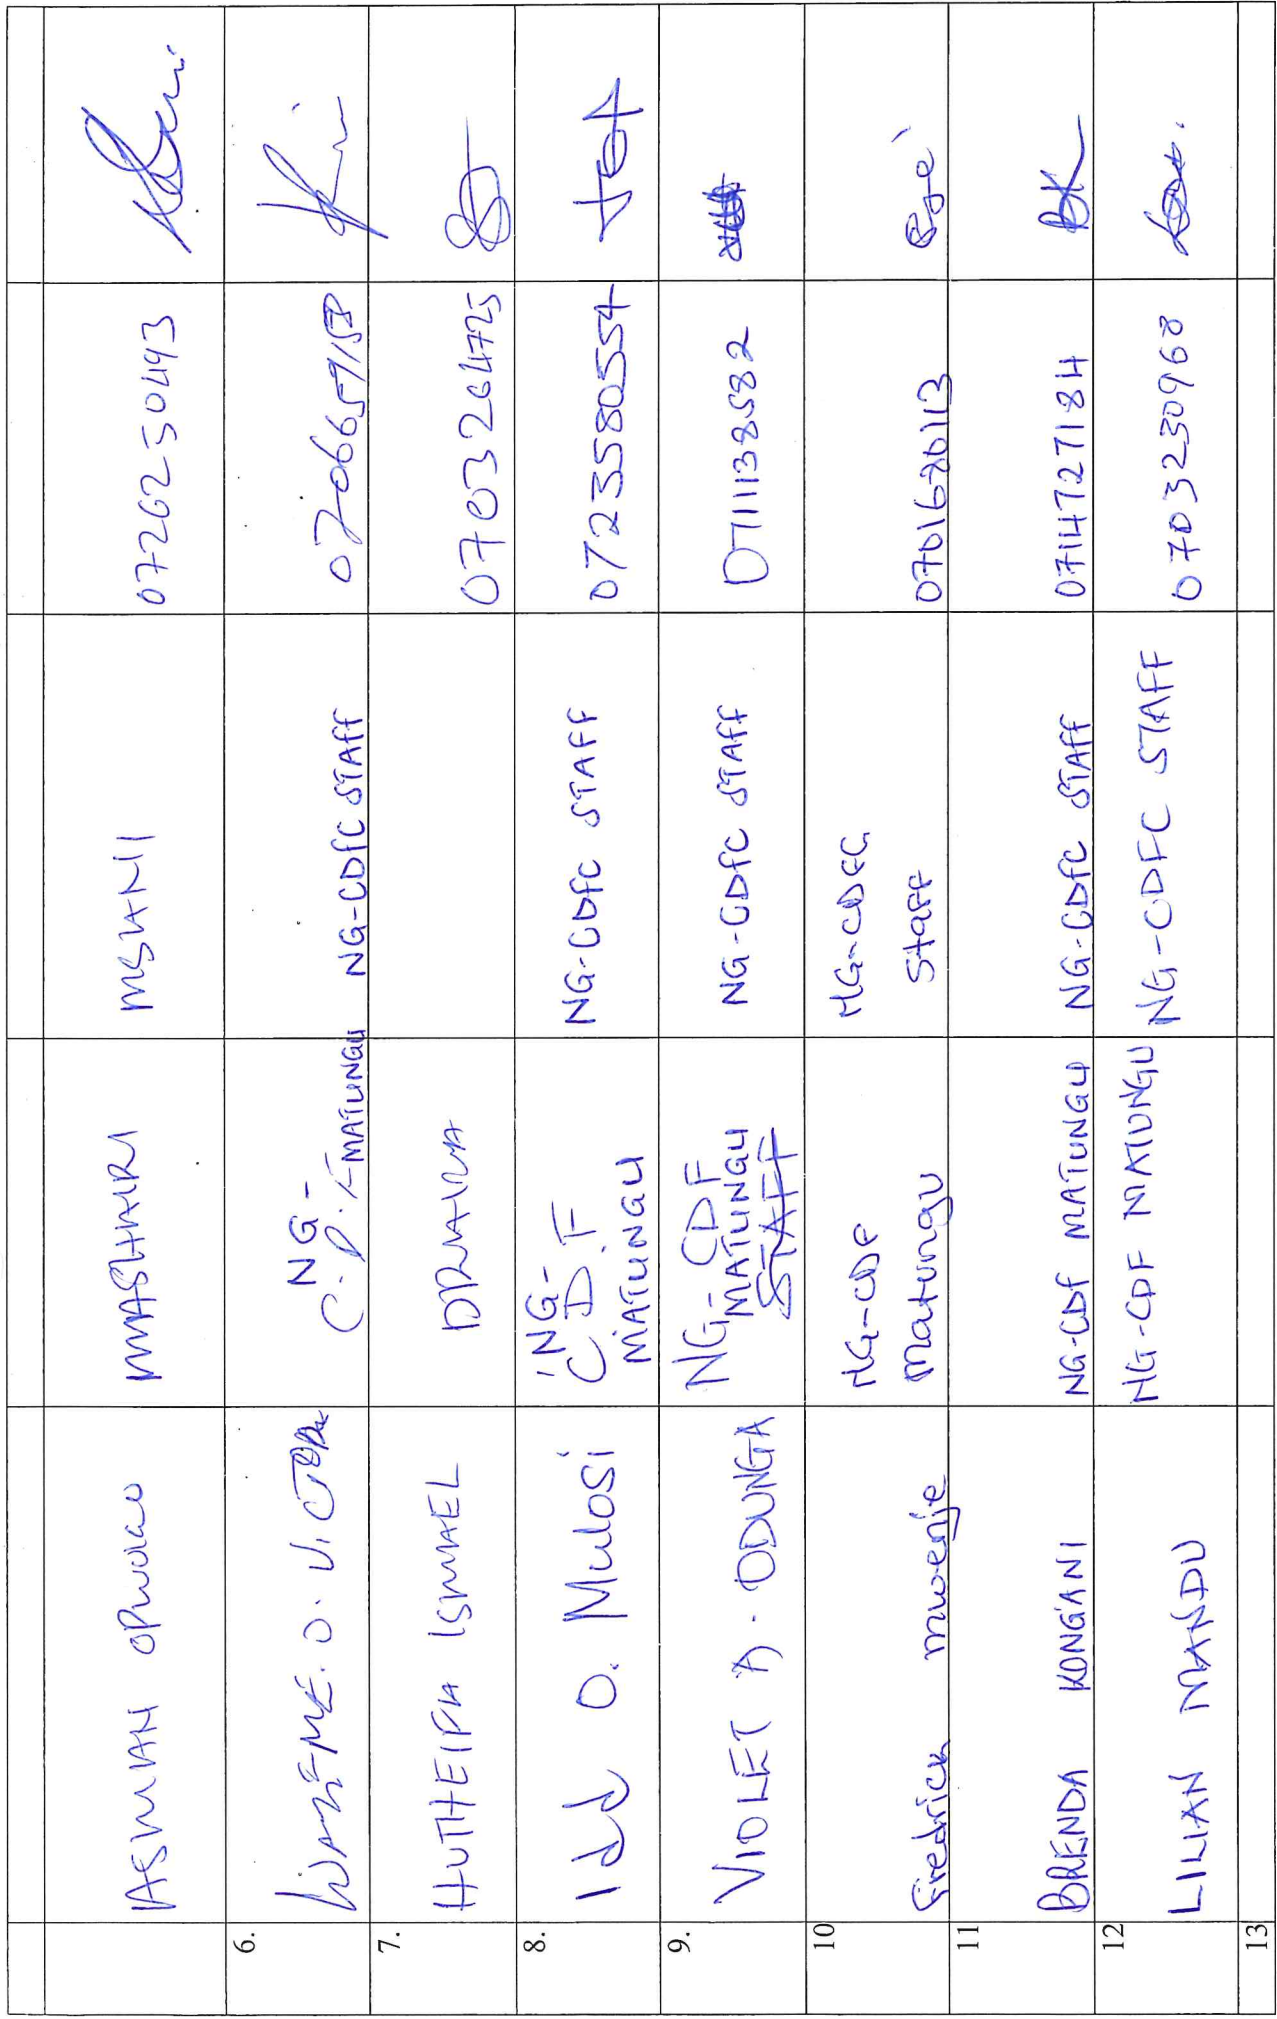 ASUMAN OPWORA MASHAIRI MSHANI 0726250493
6. WAKEME. O. VICTOR NG-
C.D.F MATUNGU NG-CDFC STAFF
7. HUTHEIFA ISMAEL DRAMA 0703264725
8. Idd O. Mulosi NG-
C.D.F
MATUNGU NG-CDFC STAFF 0723580554
9. VIOLET A. ODUNGA NG-CDF
MATUNGU
STAFF NG-CDFC STAFF 0711138582
10 Fredrick Mwenje NG-CDF
Matungu NG-CDFC
Staff
11 BRENDA KONGANI NG-CDF MATUNGU NG-CDFC STAFF 0714727184
12 LILIAN MANDU NG-CDF MATUNGU NG-CDFC STAFF 0703230960
13